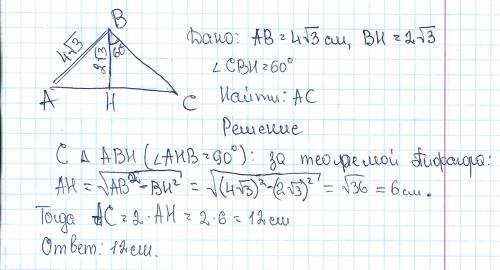 B
4√3
2√3
60°
A
H
C
Дано: AB = 4√3 см, BH = 2√3
∠CBH = 60°
Найти: AC
Решение
С Δ ABH (∠AHB = 90°): за теоремой Пифагора:
AH = √(AB² - BH²) = √((4√3)² - (2√3)²) = √36 = 6 см.
Тогда AC = 2 · AH = 2 · 6 = 12 см
Ответ: 12 см.